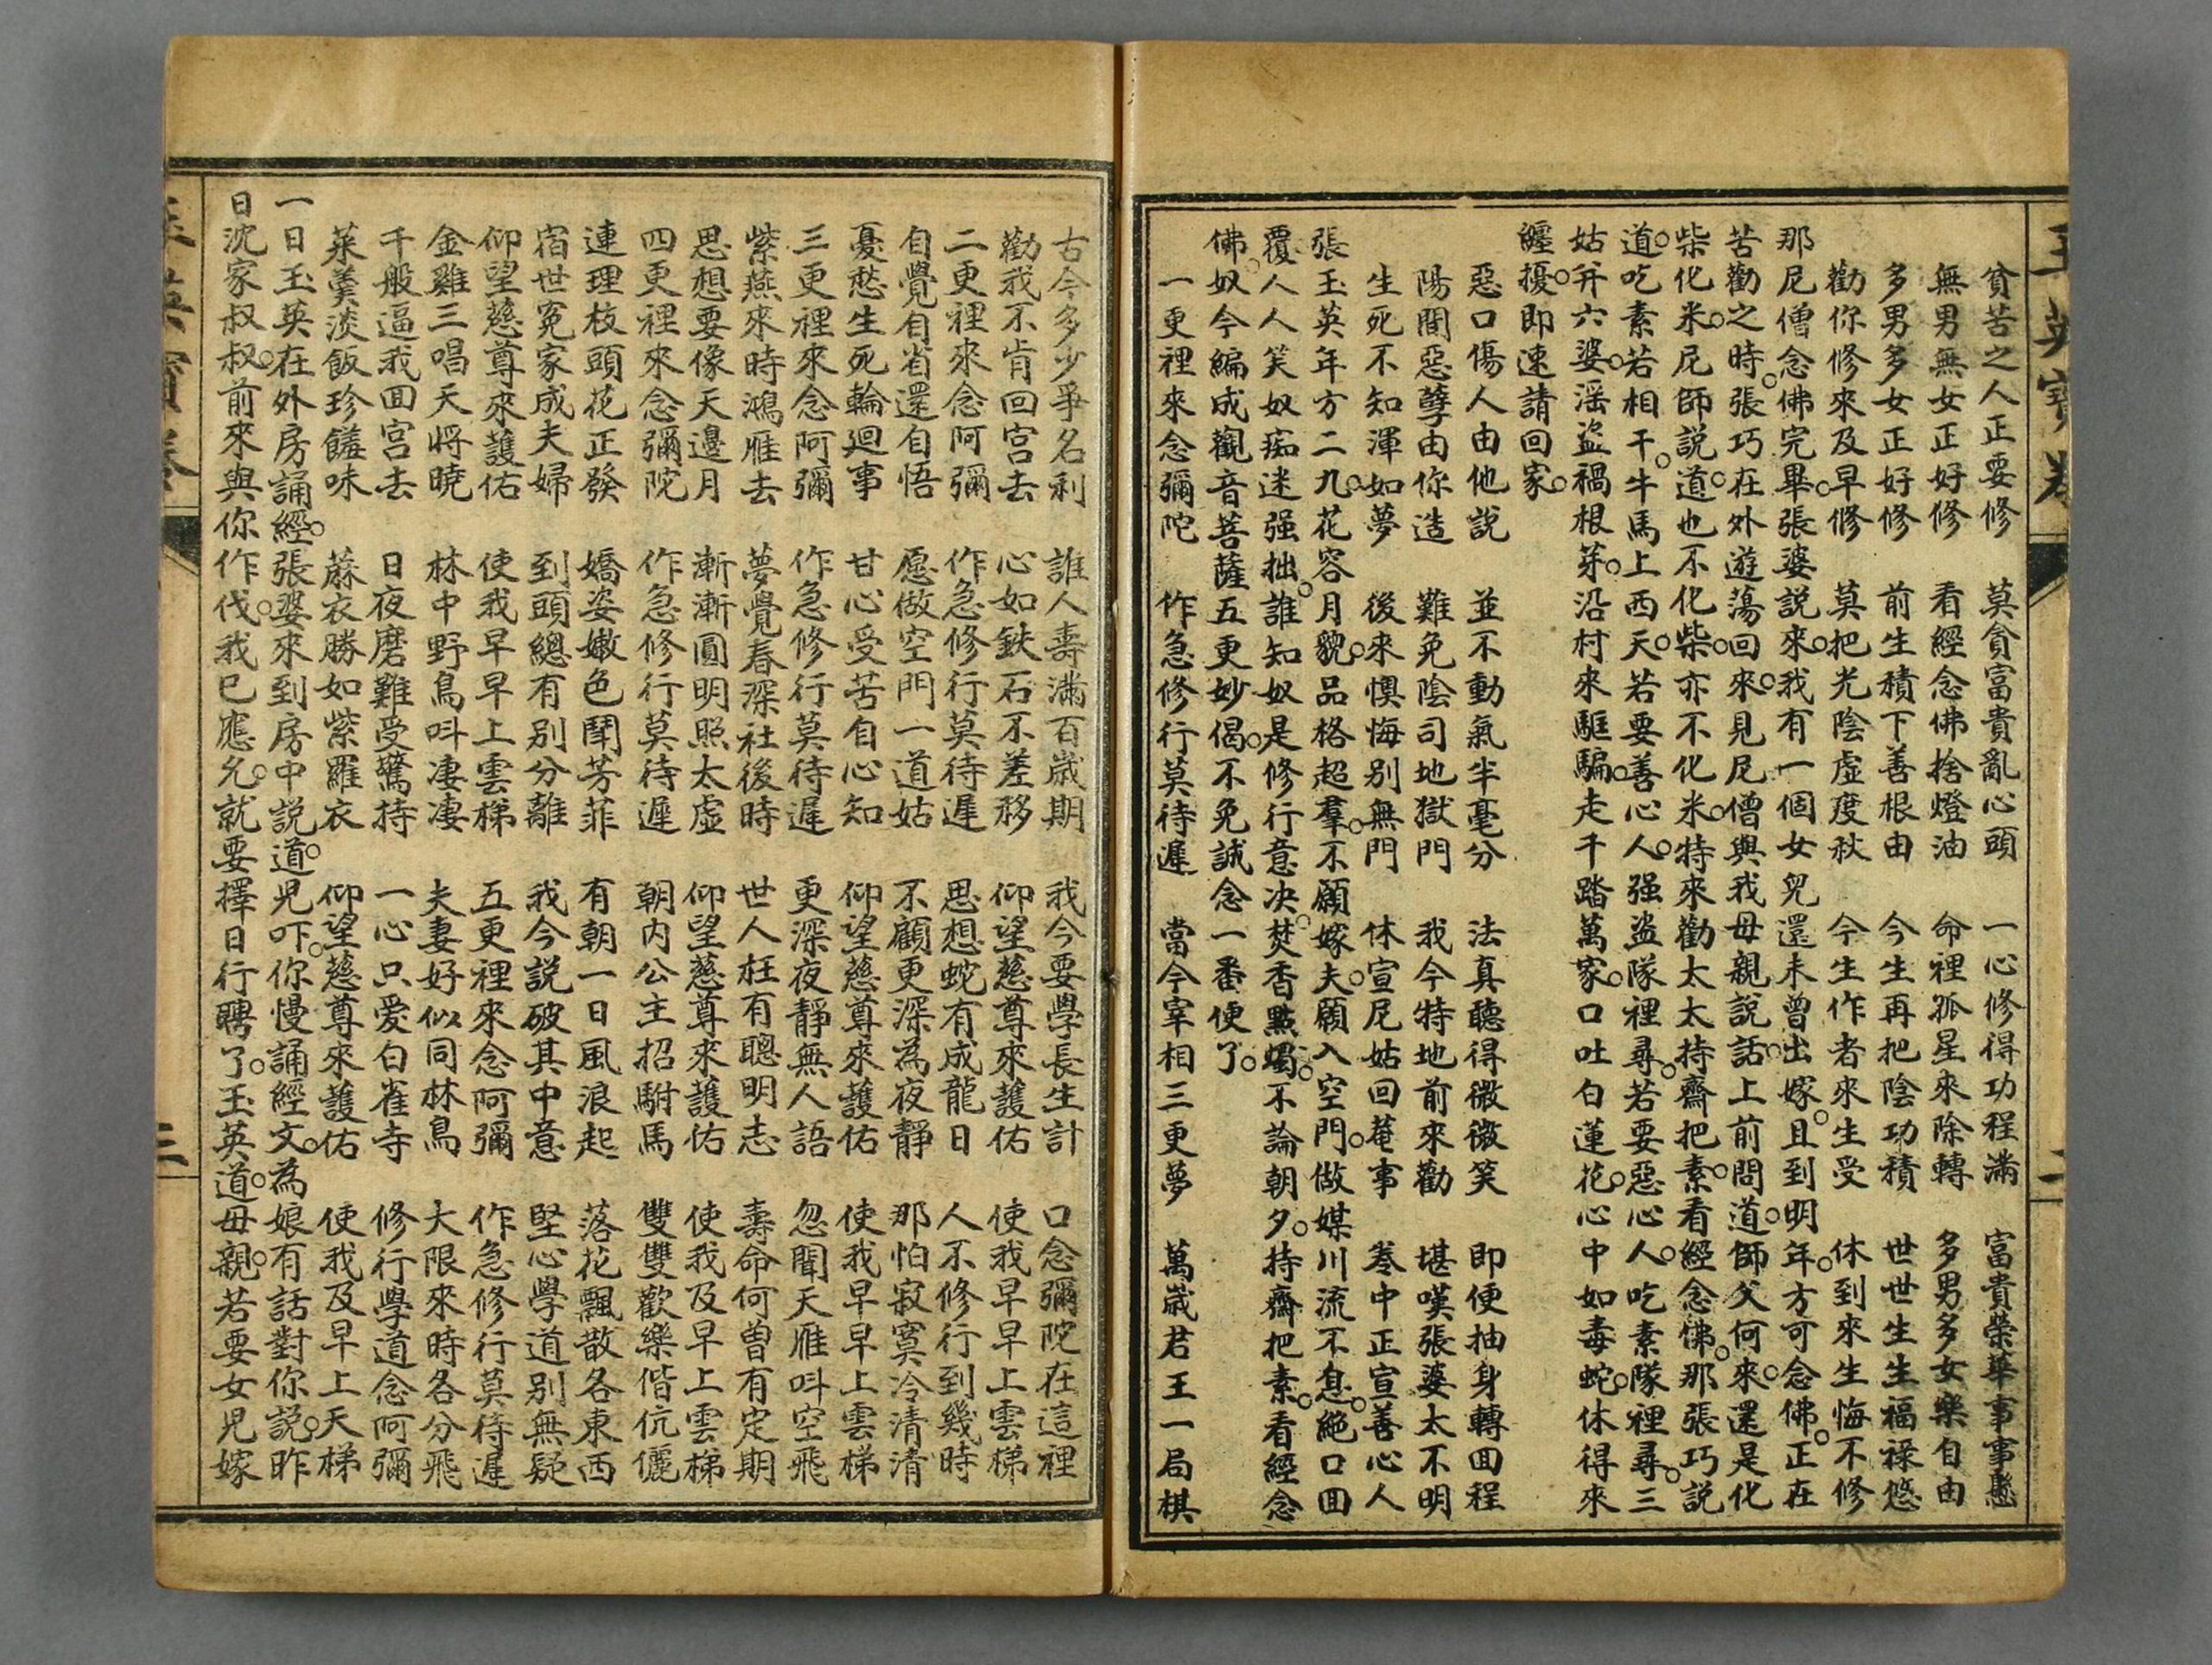 玉英寶卷
二
貧苦之人正要修　莫貪富貴亂心頭　一心修得功程滿　富貴榮華事事懸
無男無女正好修　看經念佛捨燈油　命裡孤星來除轉　多男多女樂自由
多男多女正好修　前生積下善根由　今生再把陰功積　世世生生福祿悠
勸你修來及早修　莫把光陰虛度秋　今生作者來生受　休到來生悔不修
那尼僧念佛完畢。張婆説來。我有一個女兒還未曾出嫁。且到明年。方可念佛。正在
苦勸之時。張巧在外遊蕩回來。見尼僧與我母親說話。上前問道。師父何來。還是化
柴化米。尼師説。道也不化柴。亦不化米。特來勸太太持齋把素。看經念佛。那張巧説
道。吃素若相干。牛馬上西天。若要善心人。强盗隊裡尋。若要惡心人。吃素隊裡尋。三
姑并六婆。滛盗禍根芽。沿村來駆騙。走千踏萬家。口吐白蓮花。心中如毒蛇。休得來
纏擾。即速請回家。
惡口傷人由他說　並不動氣半毫分　法真聽得微微笑　即便抽身轉囬程
陽間惡孽由你造　難免陰司地獄門　我今特地前來勸　堪嘆張婆太不明
生死不知渾如夢　後來懊悔别無門　休宣尼姑回菴事　卷中正宣善心人
張玉英年方二九。花容月貌。品格超羣。不願嫁夫。願入空門。做媒川流不息。絶口囬
覆。人人笑奴痴迷强拙。誰知奴是修行意决。焚香點燭。不論朝夕。持齋把素。看經念
佛。奴今編成觀音菩薩五更妙偈。不免誠念一番便了。
一更裡來念彌陀　作急修行莫待遲　當今宰相三更夢　萬歲君王一局棋
古今多少爭名利　誰人壽滿百歲期　我今要學長生計　口念彌陀在這裡
勸我不肯回宫去　心如鉄石不差移　仰望慈尊來護佑　使我早早上雲梯
二更裡來念阿彌　作急修行莫待遲　思想蛇有成龍日　人不修行到幾時
自覺自省還自悟　愿做空門一道姑　不顧更深為夜靜　那怕寂寞冷清清
憂愁生死輪廻事　甘心受苦自心知　仰望慈尊來護佑　使我早早上雲梯
三更裡來念阿彌　作急修行莫待遲　更深夜靜無人語　忽聞天雁呌空飛
紫燕來時鴻雁去　夢覺春深社後時　世人枉有聰明志　壽命何曾有定期
思想要像天邊月　漸漸圓明照太虛　仰望慈尊來護佑　使我及早上雲梯
四更裡來念彌陀　作急修行莫待遲　朝内公主招駙馬　雙雙歡樂偕伉儷
連理枝頭花正發　嬌姿嫩色鬪芳菲　有朝一日風浪起　落花飄散各東西
宿世冤家成夫婦　到頭總有别分離　我今説破其中意　堅心學道别無疑
仰望慈尊來護佑　使我早早上雲梯　五更裡來念阿彌　作急修行莫待遲
金雞三唱天將曉　林中野鳥呌凄凄　夫妻好似同林鳥　大限來時各分飛
千般逼我囬宫去　日夜磨難受驚持　一心只爱白雀寺　修行學道念阿彌
菜羹淡飯珍饈味　蔴衣勝如紫羅衣　仰望慈尊來護佑　使我及早上天梯
一日玉英在外房誦經。張婆來到房中説道。兒吓。你慢誦經文。為娘有話對你説。昨
日沈家叔叔。前來與你作伐。我已應允。就要擇日行聘了。玉英道。母親。若要女兒嫁
三